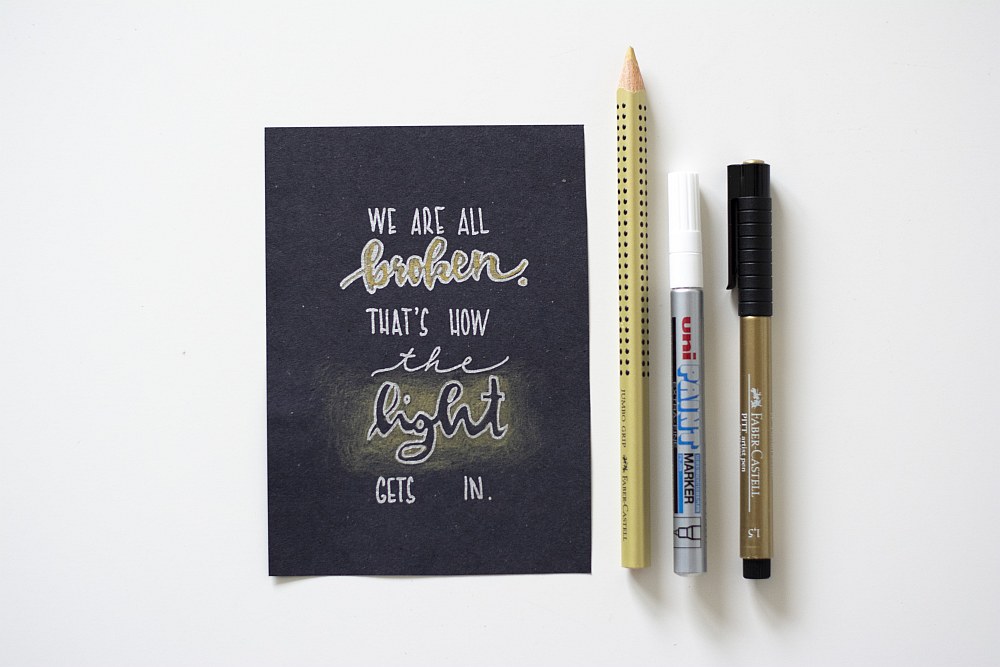 WE ARE ALL
broken.
THAT'S HOW
the
light
GETS IN.
JUMBO GRIP FABER-CASTELL
uni PAINT
MARKER
FABER-CASTELL
PITT artist pen
1,5